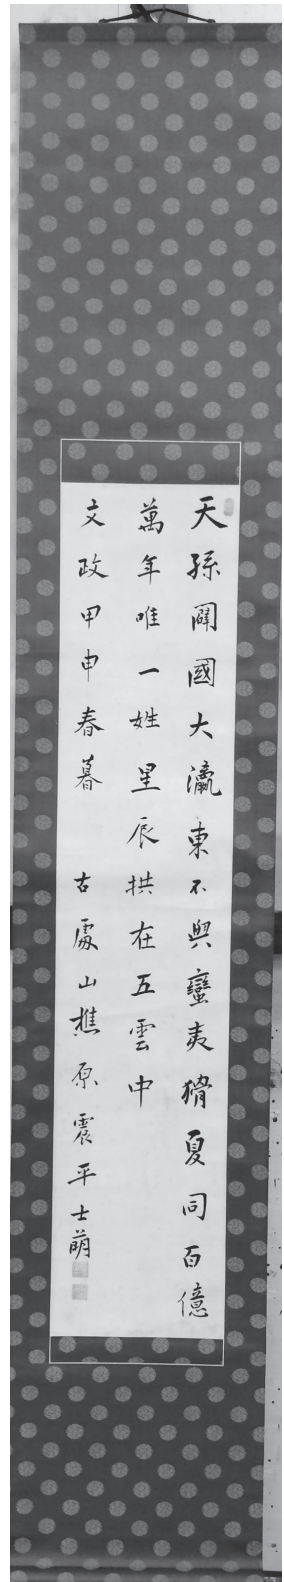 天孫闢國大瀛東不與蠻夷猾夏同百億
萬年唯一姓星辰拱在五雲中
文政甲申春暮 古處山樵原震平士萠